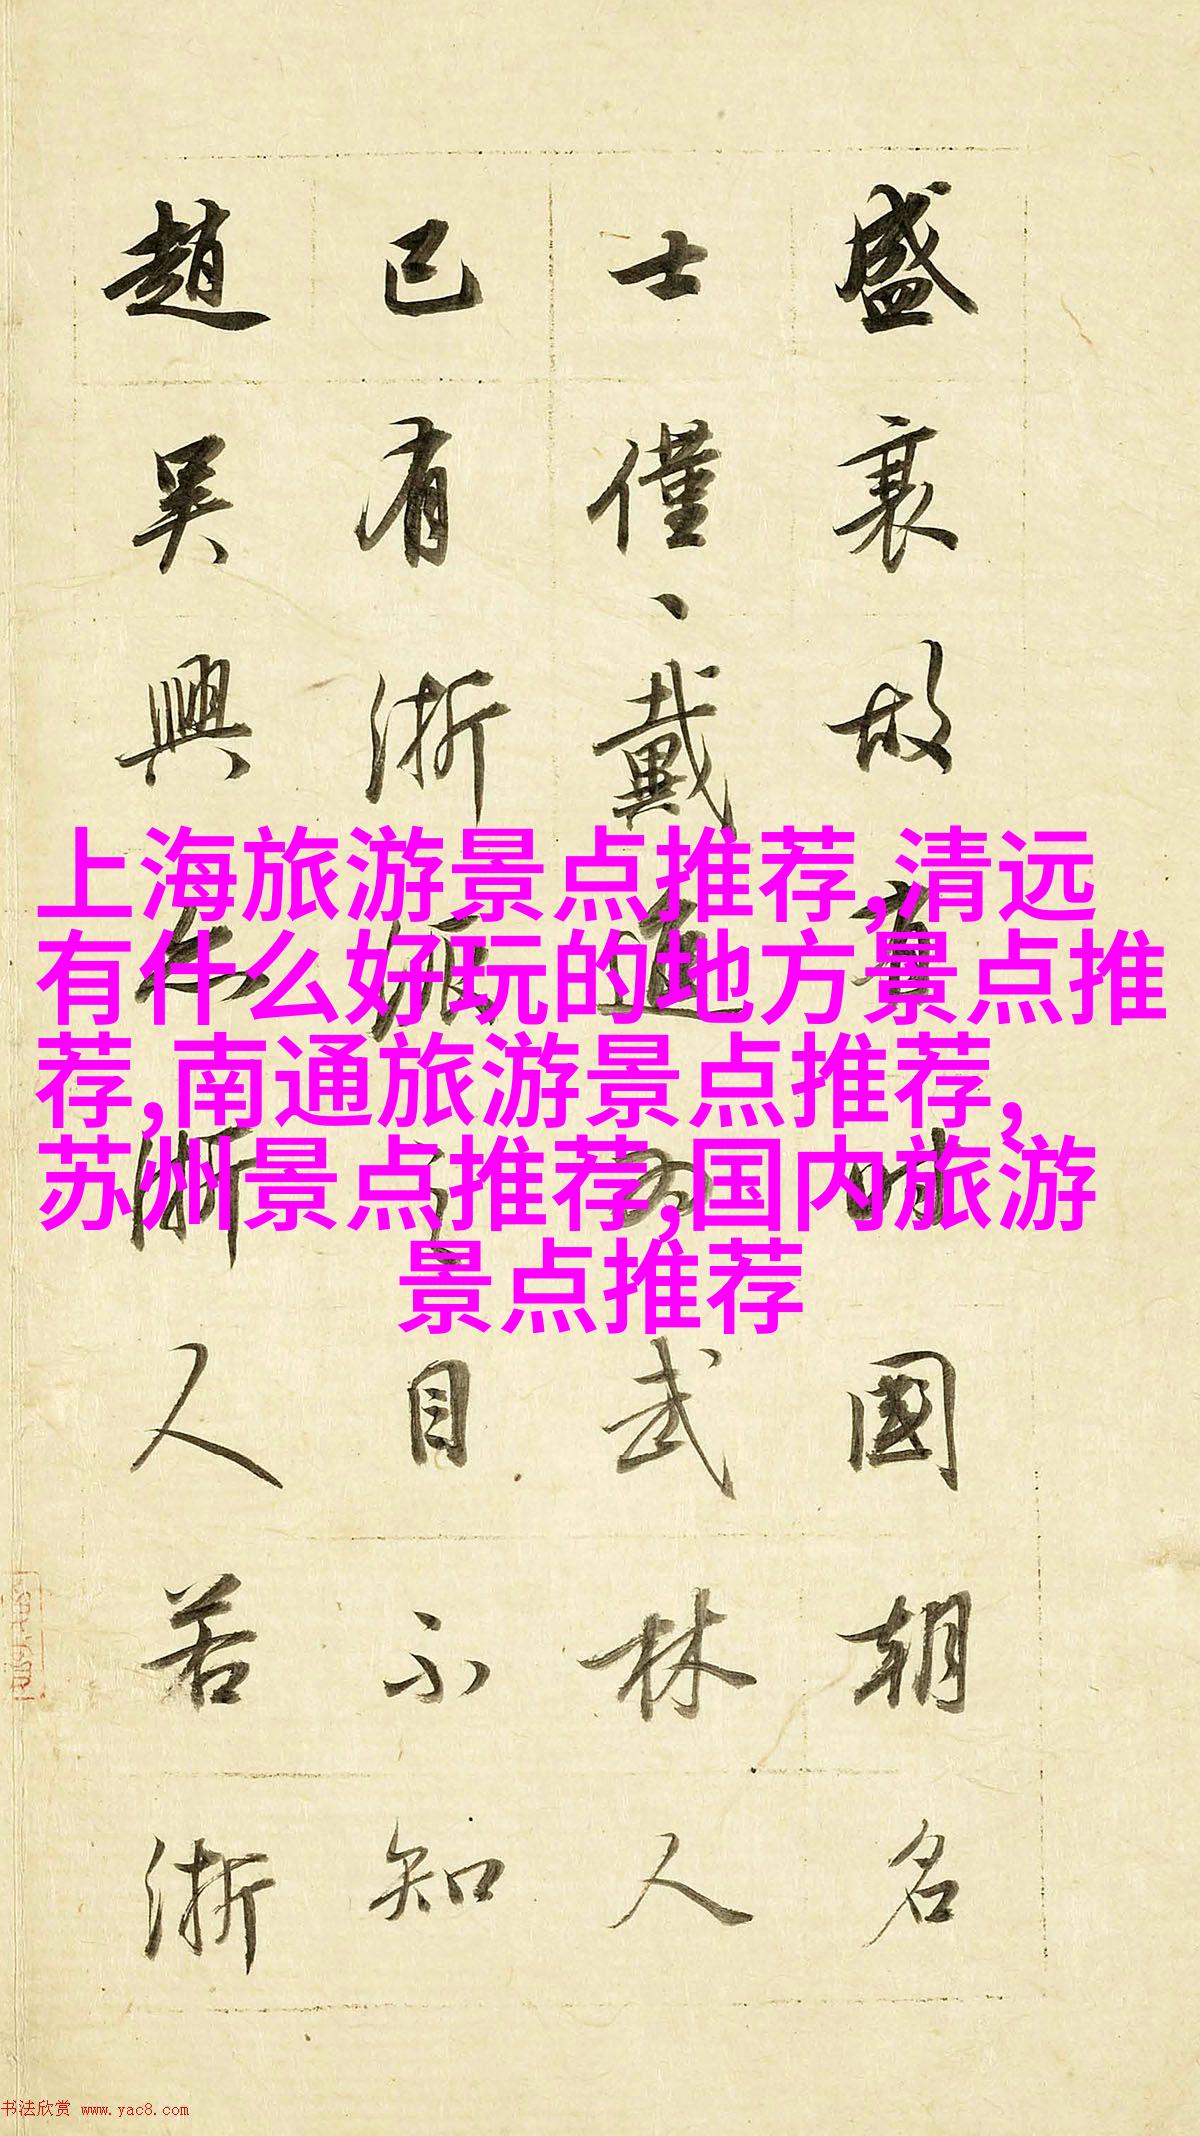 盛衰故有時國朝名
士僅、戴進為武林人
已有浙派之目不知
趙吳興亦浙人若浙
上海旅游景点推荐,清远
有什么好玩的地方景点推
荐,南通旅游景点推荐,
苏州景点推荐,国内旅游
景点推荐
书法欣赏 www.yac8.com